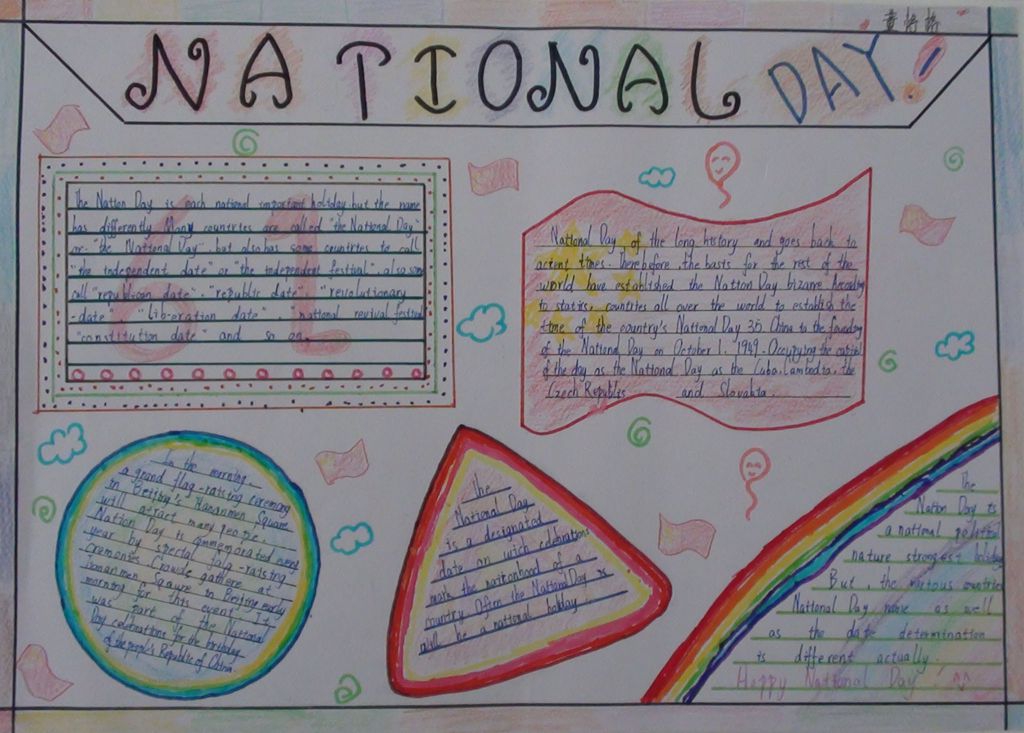 NATIONAL DAY!
The Nation Day is each national important holiday, but the name
has differently. Many countries are called "the National Day"
or "the National Day", but also has some countries to call
"the independent date" or "the independent festival", also some
call "republican date", "republic date", "revolutionary
-date", "liberation date", "national revival festival
"constitution date" and so on.
National Day, of the long history and goes back to
acient times. Therebefore, the basts for the rest of the
world have established the Nation Day bizarre. According
to statirs, countries all over the world to establish the
time of the country's National Day 35. China to the founding
of the National Day on October 1, 1949. Occupying the capitol
of the day as the National Day as the Cuba, Cambodia, the
Czech Republis and Slovakia.
In the morning,
a grand flag-raising ceremony
in Beijing's Tiananmen Square
will attract many people.
Nation Day is commemorated every
year by special gala-raising
cremonies. Crowds gathere at
Tiananmen Square in Beijing early
morning for this event. It
was part of the National
Day celebrations for the birthday
of the people's Republic of China.
The
National Day
is a designated
date on wich celebrations
mark the nationhood of a
country. Often the National Day is
will be a national holiday
The
Nation Day is
a national political
nature strongest holiday
But, the various countries
National Day name as well
as the date determination
is different actually.
Happy National Day!